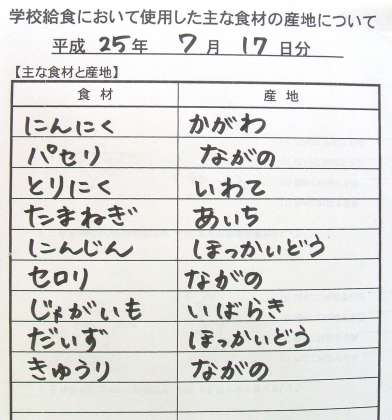 学校給食において使用した主な食材の産地について
平成 25 年 7 月 17 日分
【主な食材と産地】
食材 産地
にんにく かがわ
パセリ ながの
とりにく いわて
たまねぎ あいち
にんじん ほっかいどう
セロリ ながの
じゃがいも いばらき
だいず ほっかいどう
きゅうり ながの